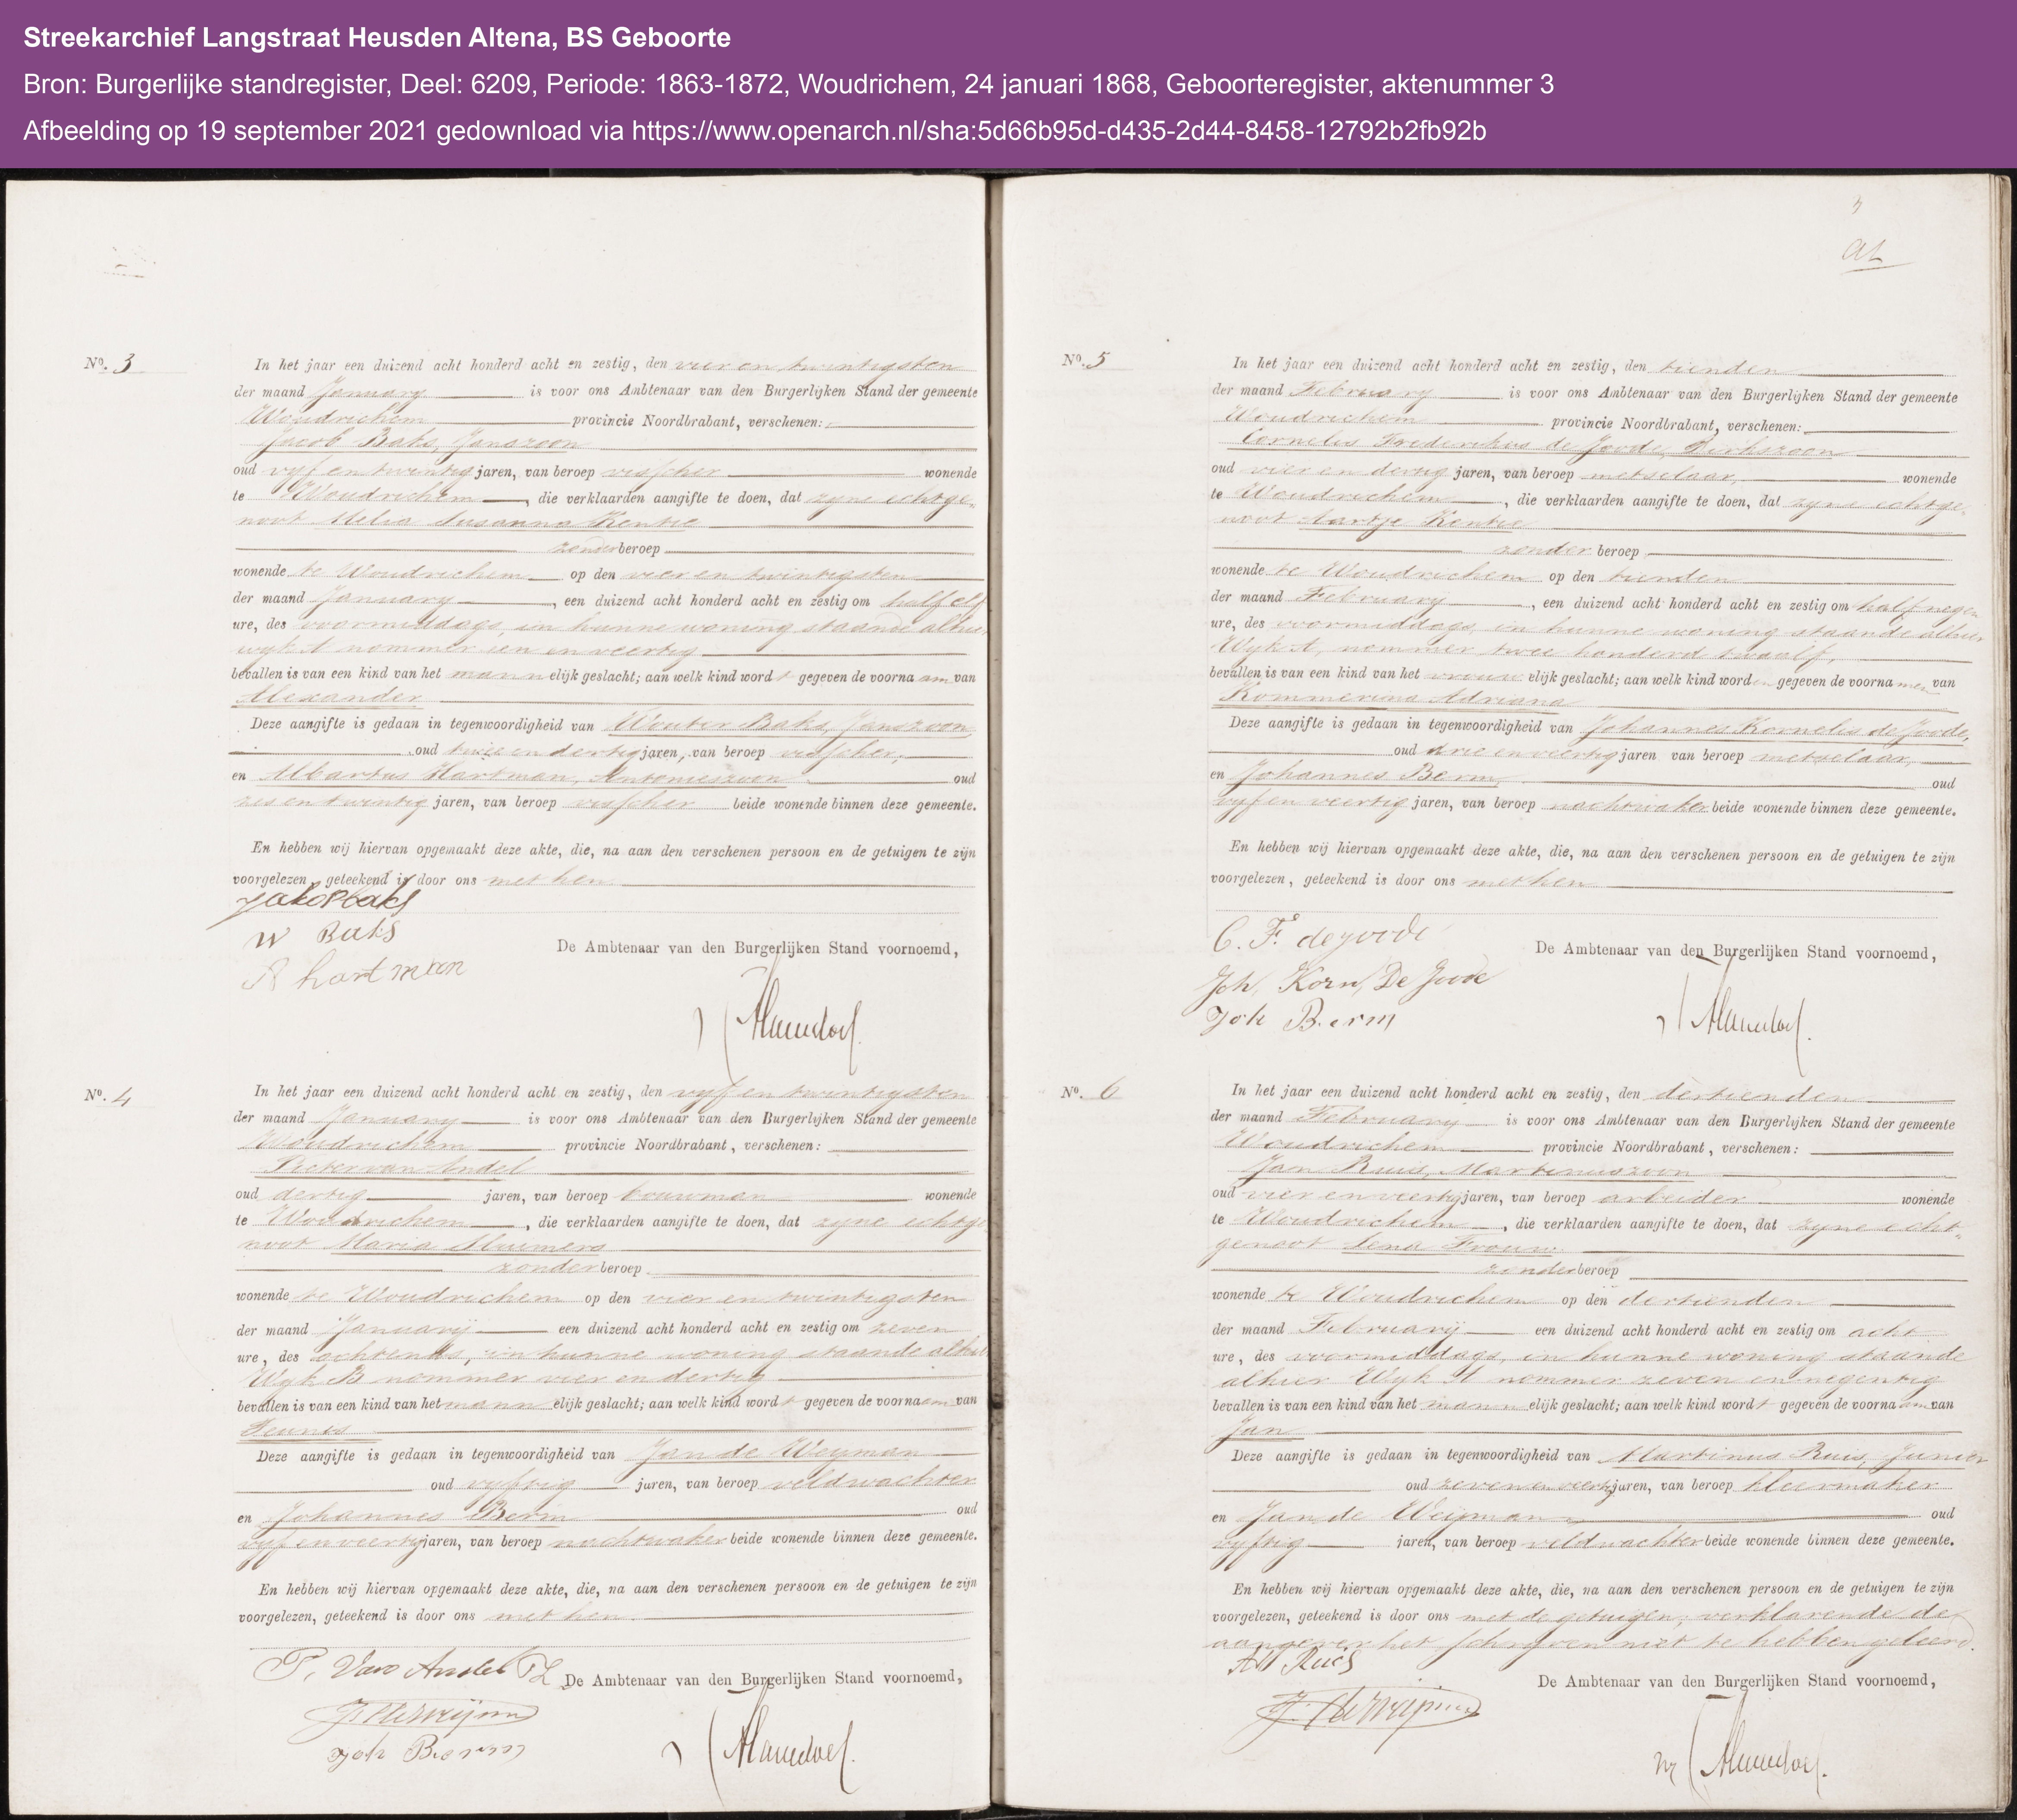 Streekarchief Langstraat Heusden Altena, BS Geboorte
Bron: Burgerlijke standregister, Deel: 6209, Periode: 1863-1872, Woudrichem, 24 januari 1868, Geboorteregister, aktenummer 3
Afbeelding op 19 september 2021 gedownload via https://www.openarch.nl/sha:5d66b95d-d435-2d44-8458-12792b2fb92b
No. 3
In het jaar een duizend acht honderd acht en zestig, den vier en twintigsten
der maand January is voor ons Ambtenaar van den Burgerlijken Stand der gemeente
Woudrichem provincie Noordbrabant, verschenen:
Jacob Baks, Janszoon
oud vyf en twintig jaren, van beroep visscher wonende
te Woudrichem, die verklaarden aangifte te doen, dat zyne echtge-
noot Melia Susanna Kentie
zonder beroep
wonende te Woudrichem op den vier en twintigsten
der maand January, een duizend acht honderd acht en zestig om half elf
ure, des voormiddags, in hunne woning staande alhier
wyk A nommer een en veertig
bevallen is van een kind van het mannelijk geslacht; aan welk kind wordt gegeven de voornaam van
Alexander
Deze aangifte is gedaan in tegenwoordigheid van Wouter Baks, Janszoon,
oud twee en dertig jaren, van beroep visscher,
en Albartus Hartman, Antonieszoon oud
zes en twintig jaren, van beroep visscher beide wonende binnen deze gemeente.
En hebben wij hiervan opgemaakt deze akte, die, na aan den verschenen persoon en de getuigen te zijn
voorgelezen, geteekend is door ons met hen
Jakob Baks
W Baks
A hartman
De Ambtenaar van den Burgerlijken Stand voornoemd,
No. 4
In het jaar een duizend acht honderd acht en zestig, den vyf en twintigsten
der maand January is voor ons Ambtenaar van den Burgerlijken Stand der gemeente
Woudrichem provincie Noordbrabant, verschenen:
Pieter van Andel
oud dertig jaren, van beroep bouwman wonende
te Woudrichem, die verklaarden aangifte te doen, dat zyne echtge
noot Maria Sluimers
zonder beroep
wonende te Woudrichem op den vier en twintigsten
der maand Januarij een duizend acht honderd acht en zestig om zeven
ure, des ochtends, in hunne woning staande alhier
Wyk B nommer vier en dertig
bevallen is van een kind van het mannelijk geslacht; aan welk kind wordt gegeven de voornaam van
Teunis
Deze aangifte is gedaan in tegenwoordigheid van Jan de Weyman
oud vyftig jaren, van beroep veldwachter
en Johannes Berm oud
vyf en veertig jaren, van beroep nachtwaker beide wonende binnen deze gemeente.
En hebben wij hiervan opgemaakt deze akte, die, na aan den verschenen persoon en de getuigen te zijn
voorgelezen, geteekend is door ons met hen.
P. Van Andel TZ
De Ambtenaar van den Burgerlijken Stand voornoemd,
Joh Berm
No. 5
In het jaar een duizend acht honderd acht en zestig, den tienden
der maand February is voor ons Ambtenaar van den Burgerlijken Stand der gemeente
Woudrichem provincie Noordbrabant, verschenen:
Cornelis Frederikus de Joode, Dirkszoon
oud vier en dertig jaren, van beroep metselaar, wonende
te Woudrichem, die verklaarden aangifte te doen, dat zyne echtge
noot Aartje Kentie
zonder beroep
wonende te Woudrichem op den tienden
der maand February, een duizend acht honderd acht en zestig om half negen
ure, des voormiddags, in hunne woning staande alhier
Wyk A, nommer twee honderd twaalf,
bevallen is van een kind van het vrouwelijk geslacht; aan welk kind worden gegeven de voornamen van
Kommerina Adriana
Deze aangifte is gedaan in tegenwoordigheid van Johannes Kornelis de Joode,
oud drie en veertig jaren van beroep metselaar,
en Johannes Berm, oud
vyf en veertig jaren, van beroep nachtwaker beide wonende binnen deze gemeente.
En hebben wij hiervan opgemaakt deze akte, die, na aan den verschenen persoon en de getuigen te zijn
voorgelezen, geteekend is door ons met hen
C. F. de joode
Joh, Korn, De Joode
Joh Berm
De Ambtenaar van den Burgerlijken Stand voornoemd,
No. 6
In het jaar een duizend acht honderd acht en zestig, den dertienden
der maand February is voor ons Ambtenaar van den Burgerlijken Stand der gemeente
Woudrichem provincie Noordbrabant, verschenen:
Jan Ruis, Martinuszoon
oud vier en veertig jaren, van beroep arbeider wonende
te Woudrichem, die verklaarden aangifte te doen, dat zyne echt-
genoot Lena Trouw
zonder beroep
wonende te Woudrichem op den dertienden
der maand Februarij een duizend acht honderd acht en zestig om acht
ure, des voormiddags, in hunne woning staande
alhier Wyk A nommer zeven en negentig
bevallen is van een kind van het mannelijk geslacht; aan welk kind wordt gegeven de voornaam van
Jan
Deze aangifte is gedaan in tegenwoordigheid van Martinus Ruis, Junior
oud zeven en veertig jaren, van beroep kleermaker
en Jan de Weijman oud
vyftig jaren, van beroep veldwachter beide wonende binnen deze gemeente.
En hebben wij hiervan opgemaakt deze akte, die, na aan den verschenen persoon en de getuigen te zijn
voorgelezen, geteekend is door ons met de getuigen, verklarende de
aangever het schryven niet te hebben geleerd.
M Ruis
De Ambtenaar van den Burgerlijken Stand voornoemd,